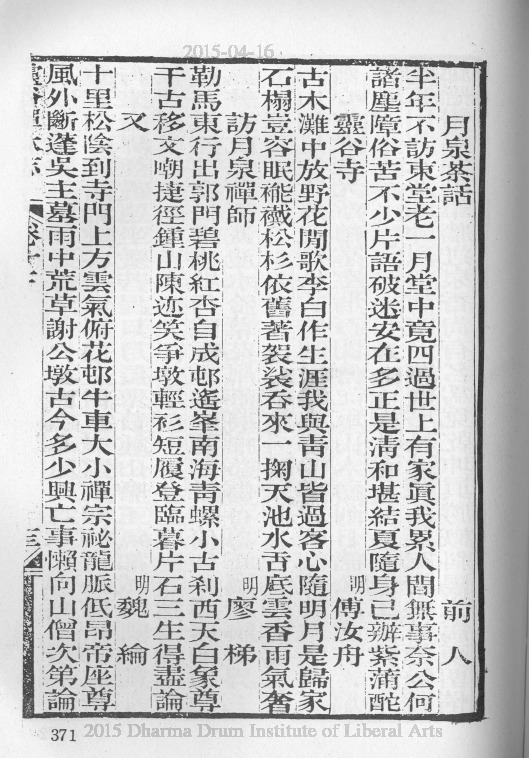 2015-04-16
月泉茶話
前人
半年不訪東堂老一月堂中竟四過世上有家眞我累人間無事奈公何
諸塵障俗苦不少片語破迷安在多正是淸和堪結夏隨身已辦紫蒲鮀
靈谷寺
明 傅汝舟
古木灘中放野花閒歌李白作生涯我與靑山皆過客心隨明月是歸家
石榻豈容眠襪松杉依舊著袈裟吞來一掬天池水舌底雲香雨氣奢
訪月泉禪師
明 廖梯
勒馬東行出郭門碧桃紅杏自成邨遙峯南海靑螺小古刹西天白象尊
千古移文嘲捷徑鍾山陳迹笑爭墩輕衫短履登臨暮片石三生得盡論
又
明 魏綸
十里松陰到寺門上方雲氣俯花邨牛車大小禪宗祕龍脈低昂帝座尊
風外斷蓬吳主墓雨中荒草謝公墩古今多少興亡事懶向山僧次第論
371
2015 Dharma Drum Institute of Liberal Arts